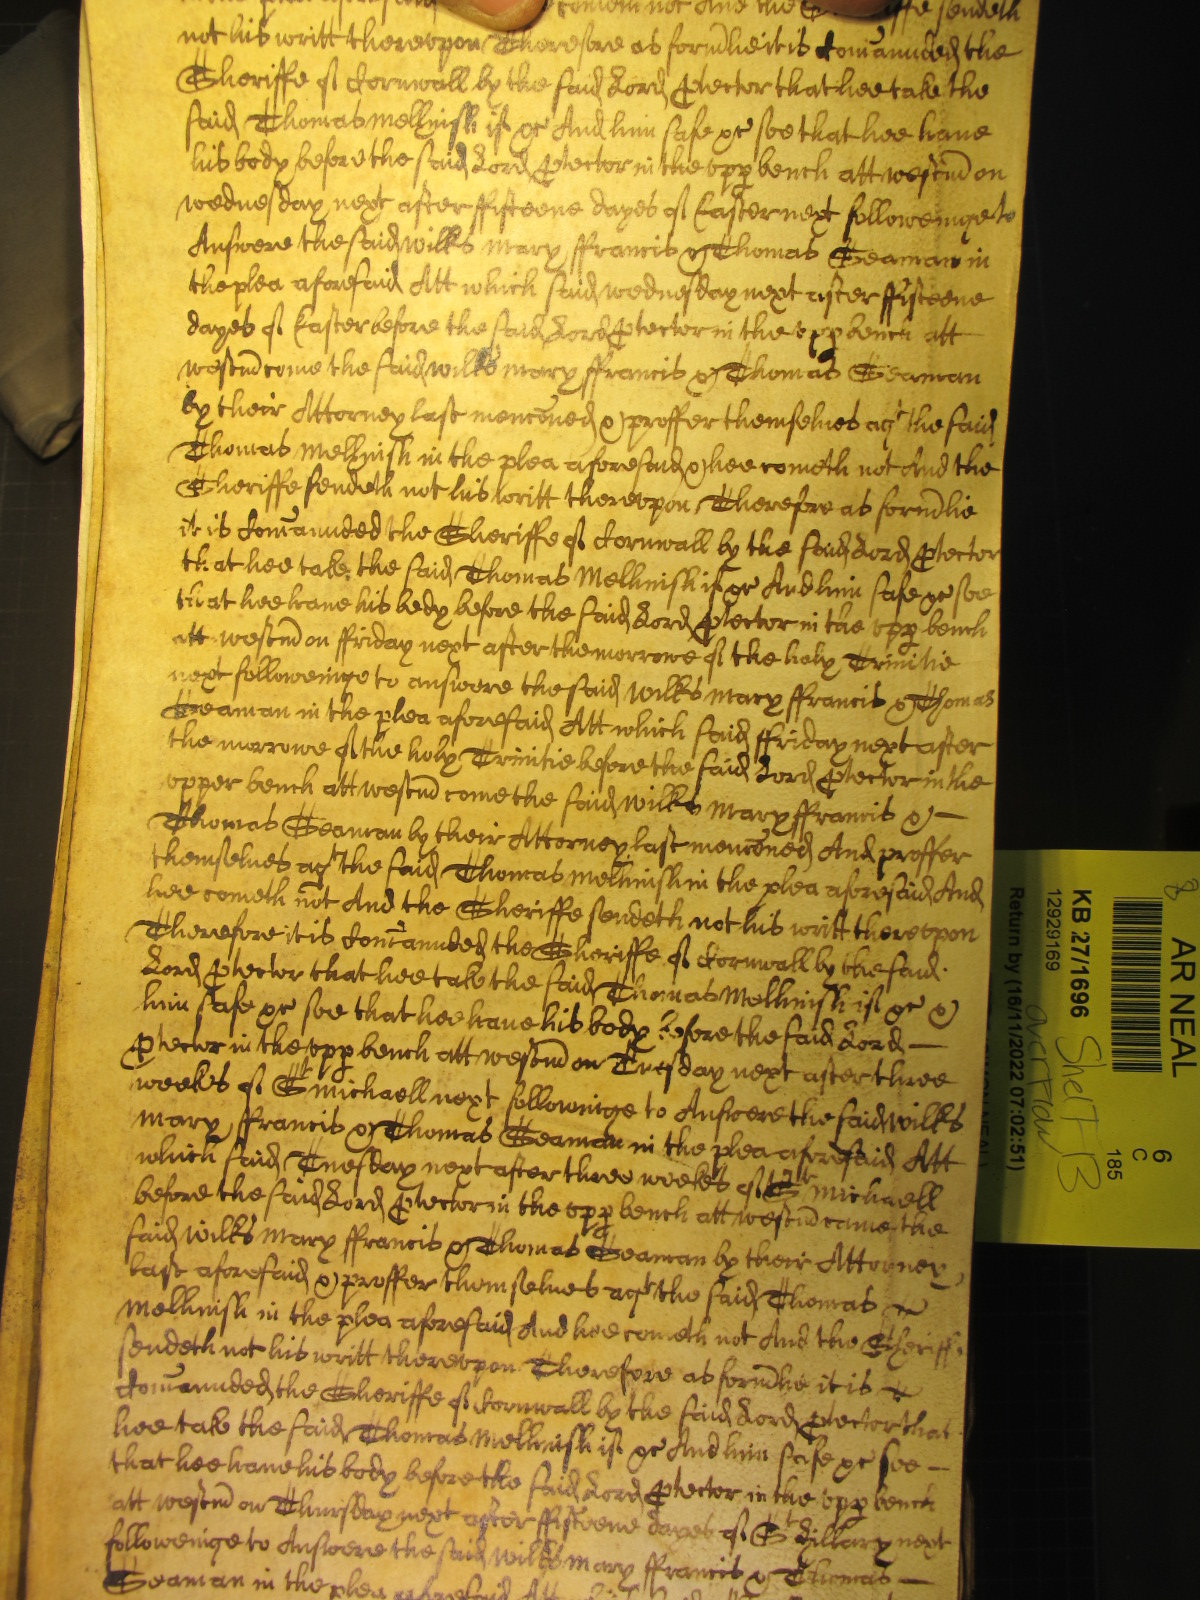 cometh not And the Sheriffe sendeth
not his writt therevpon Therefore as form̄lie it is Com̄aunded the
Sheriffe of Cornwall by the said Lord P̲tector that hee take the
said Thomas Mellhuish if &c And him safe &c soe that hee haue
his body before the said Lord P̲tector in the vpp̲ bench att westm̄ on
wednesday next after ffifteene dayes of Easter next followeinge to
Answere the said wilks mary ffrancis & Thomas Seaman in
the plea aforesaid Att which said wednesday next after ffifteene
dayes of Easter before the said Lord P̲tector in the vpp̲ bench att
westm̄ come the said wilks mary ffrancis & Thomas Seaman
by their Attorney last menc̄oned & proffer themselues agt the said
Thomas Mellhuish in the plea aforesaid & hee cometh not And the
Sheriffe sendeth not his writt therevpon Therefore as form̄lie
it is Com̄aunded the Sheriffe of Cornwall by the said Lord P̲tector
that hee take the said Thomas Mellhuish if &c And him safe &c soe
that hee haue his body before the said Lord P̲tector in the vpp̲ bench
att westm̄ on ffriday next after the morrowe of the holy Trinitie
next followeinge to answere the said wilks mary ffrancis & Thomas
Seaman in the plea aforesaid Att which said ffriday next after
the morrowe of the holy Trinitie before the said Lord P̲tector in the
vpper bench att westm̄ come the said wilks mary ffrancis & —
Thomas Seaman by their Attorney last menc̄oned And proffer
themselues agt the said Thomas mellhuish in the plea aforesaid And
hee cometh not And the Sheriffe sendeth not his writt therevpon
Therefore it is Com̄aunded the Sheriffe of Cornwall by the said
Lord P̲tector that hee take the said Thomas Mellhuish if &c &
him safe &c soe that hee haue his body before the said Lord —
P̲tector in the vpp̲ bench att westm̄ on Tuesday next after three
weekes of St michaell next followinge to Answere the said wilks
mary ffrancis & Thomas Seaman in the plea aforesaid Att
which said Tuesday next after three weekes of St Michaell
before the said Lord P̲tector in the vpp̲ bench att westm̄ came the
said wilks mary ffrancis & Thomas Seaman by their Attorney
last aforesaid & proffer themselues agt the said Thomas
Mellhuish in the plea aforesaid And hee cometh not And the Sheriffe
sendeth not his writt therevpon Therefore as form̄lie it is
Com̄aunded the Sheriffe of Cornwall by the said Lord P̲tector that
hee take the said Thomas Mellhuish if &c And him safe &c soe —
that hee haue his body before the said Lord P̲tector in the vpp̲ bench
att westm̄ on Thursday next after ffifteene dayes of St Hillary next
followeinge to Answere the said wilks mary ffrancis & Thomas —
Seaman in the plea aforesaid Att
8
AR NEAL
6
C
185
KB 27/1696
12929169
Return by (16/11/2022 07:02:51)
Shelf 13
overflow